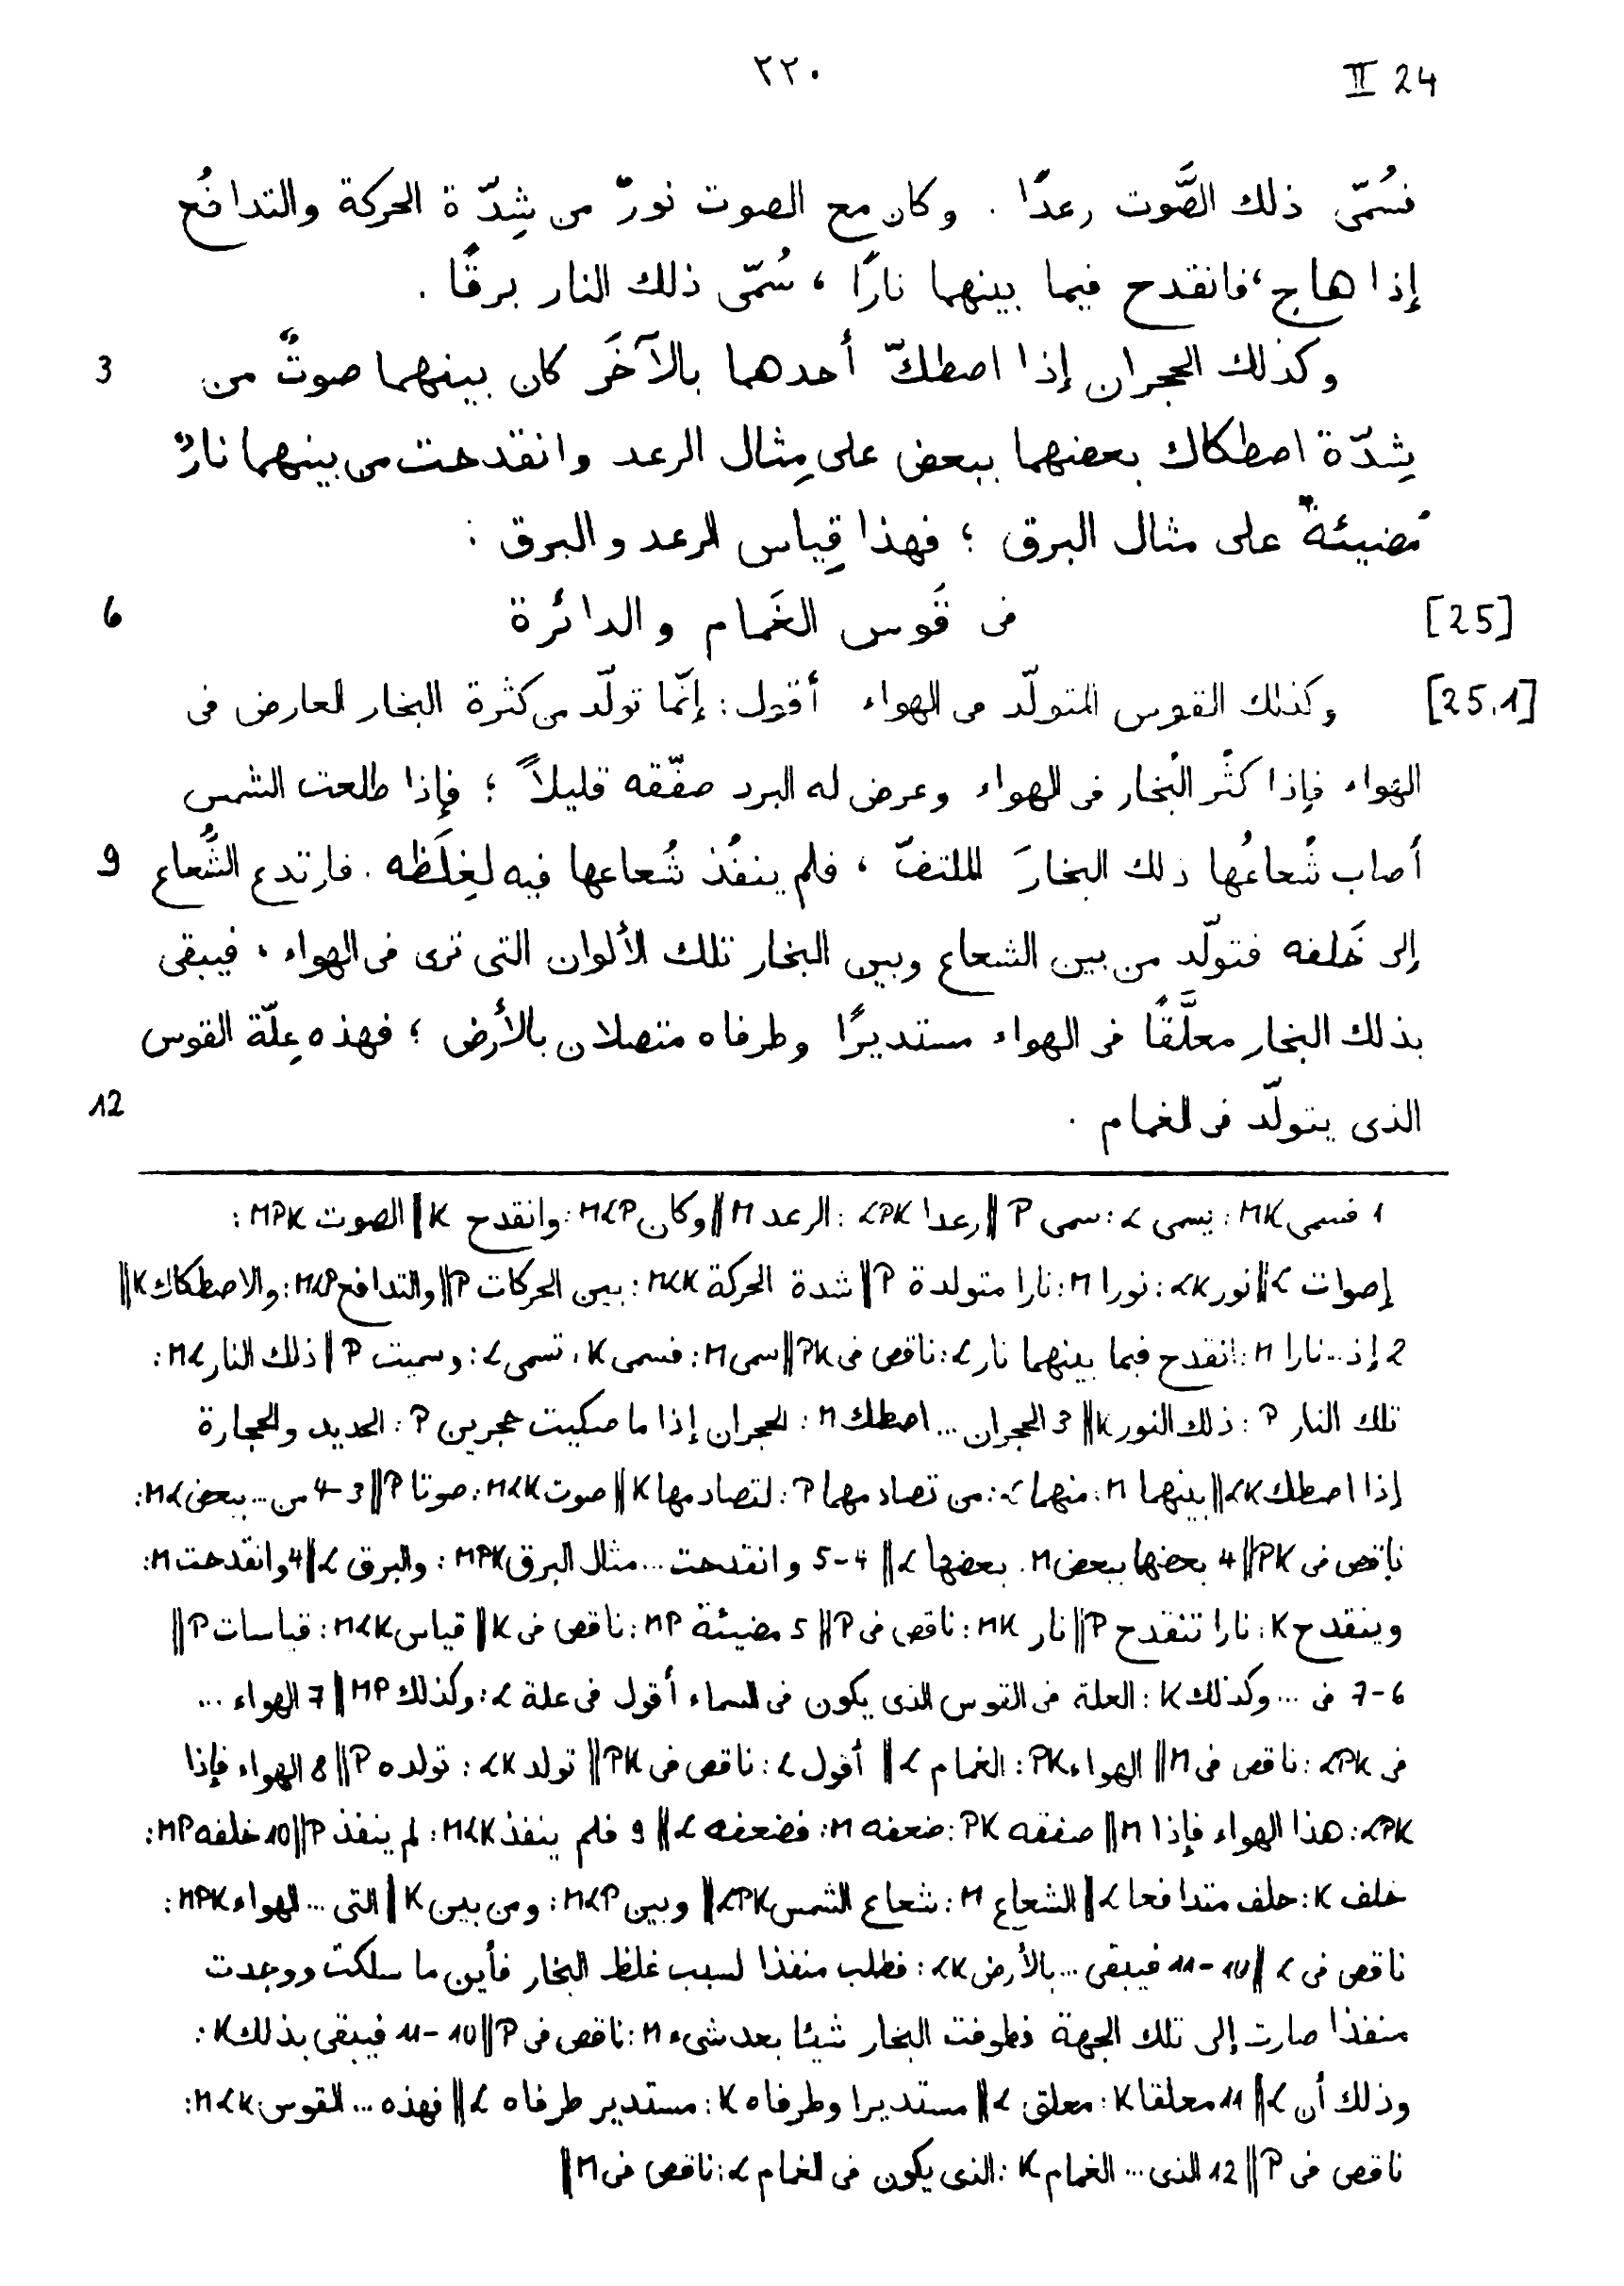 ٢٢٠ II 24
فسُمّى ذلك الصَّوت رعدًا . وكان مع الصوت نورٌ من شِدّة الحركة والتدافُع
إذا هاج، فانقدح فيما بينهما نارًا ، سُمّى ذلك النار برقًا .
وكذلك الحجران إذا اصطكّ أحدهما بالآخَر كان بينهما صوتٌ من 3
شِدّة اصطكاك بعضهما ببعض على مِثال الرعد وانقدحت من بينهما نارٌ
مُضيئةٌ على مثال البرق ؛ فهذا قِياس الرعد والبرق :
[25] فى قَوس الغَمام والدائرة 6
[25.1] وكذلك القوس المتولّد من الهواء أقول : إنّما تولّد من كثرة البخار العارض فى
الهَواء فإذا كثُر البُخار فى الهواء وعرض له البرد صفّقه قليلاً ؛ فإذا طلعت الشمس
أصاب شُعاعُها ذلك البخارَ الملتفّ ، فلم ينفُذ شُعاعها فيه لغِلَظه . فارتدع الشُّعاع 9
إلى خَلفه فتولّد من بين الشعاع وبين البخار تلك الألوان التى ترى فى الهواء ، فيبقى
بذلك البخار معلَّقًا فى الهواء مستديرًا وطرفاه متصلان بالأرض ؛ فهذه عِلّة القوس
الذى يتولّد فى الغمام . 12
1 فسمى MK : يسمى L : سمى P || رعدا LPK : الرعد M || وكان MLP : وانقدح K || الصوت MPK :
إصوات L || نور LK : نورا M : نارا متولدة P || شدة الحركة MLK : بين الحركات P || والتدافع MLP : والاصطكاك K ||
2 إذ ... نارا M : انقدح فيما بينهما نار L : ناقص فى PK || سمى M : فسمى K ، تسمى L : وسميت P || ذلك النار ML :
تلك النار P : ذلك النور K || 3 الحجران ... اصطك M : الحجران إذا ما صكيت حجرين P : الحديد والحجارة
إذا اصطك LK || بينهما M : منهما L : من تصادمهما P : لتصادمها K || صوت MLK : صوتا P || 3-4 من ... ببعض ML :
ناقص فى PK || 4 بعضها ببعض M . بعضها L || 4-5 وانقدحت ... مثال البرق MPK : والبرق L || 4 وانقدحت M :
وينقدح K : نارا تنقدح P || نار MK : ناقص فى P || 5 مضيئة MP : ناقص فى K || قياس MLK : قياسات P ||
6-7 فى ... وكذلك K : العلة فى القوس الذى يكون فى السماء أقول فى علة L : وكذلك MP || 7 الهواء ...
فى LPK : ناقص فى M || الهواء PK : الغمام L || أقول L : ناقص فى PK || تولد LK : تولده P || 8 الهواء فإذا
LPK : هذا الهواء فإذا M || صفقه PK : ضعفه M : فضعفه L || 9 فلم ينفذ MLK : لم ينفذ P || 10 خلفه MP :
خلف K : حلف متدافعا L || الشعاع M : شعاع الشمس LPK || وبين MLP : ومن بين K || التى ... الهواء MPK :
ناقص فى L || 10-11 فيبقى ... بالأرض LK : فطلب منفذا لسبب غلظ البخار فأين ما سلكت ووجدت
منفذا صارت إلى تلك الجهة فطوفت البخار شيئا بعد شىء M : ناقص فى P || 10-11 فيبقى بذلك K :
وذلك أن L || 11 معلقا K : معلق L || مستديرا وطرفاه K : مستدير طرفاه L || فهذه ... القوس MLK :
ناقص فى P || 12 الذى ... الغمام K : الذى يكون فى الغمام L : ناقص فى M ||